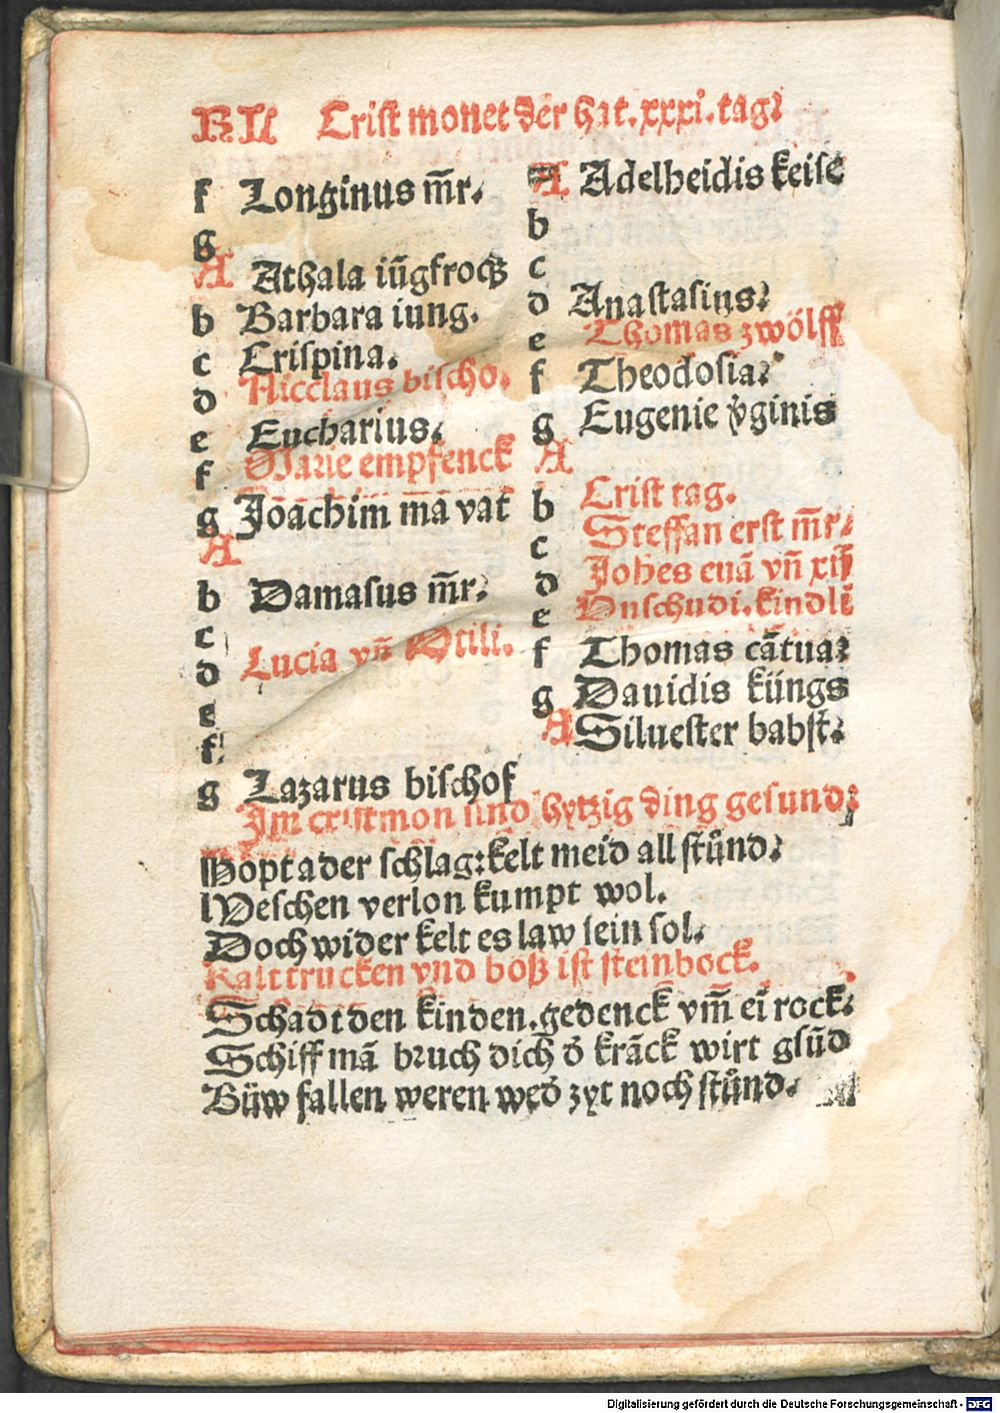 KL Crist monet der hat. xxxi. tag.
f Longinus m̄r.
g
A Athala iūgfrow
b Barbara iung.
c Crispina.
d Nicclaus bischo.
e Eucharius.
f Marie empfenck
g Joachim mā vat
A
b Damasus m̄r.
c
d Lucia vn̄ Otili.
e
f
g Lazarus bischof
A Adelheidis keise
b
c
d Anastasius.
e Thomas zwölff
f Theodosia.
g Eugenie v̄ginis
A
b Crist tag.
c Steffan erst m̄r.
d Johes euā vn̄
e Vnschudi. kindli
f Thomas cātua.
g Dauidis küngs
A Siluester babst.
Im cristmon sind hytzig ding gesund.
Hopt ader schlag: kelt meid all stůnd.
Weschen verlon kumpt wol.
Doch wider kelt es law sein sol.
Kalt trucken vnd böß ist steinbock.
Schadt den kinden. gedenck vm̄ ei rock.
Schiff mā bruch dich đ krāck wirt gsūd
Büw fallen weren weđ zyt noch stůnd.
Digitalisierung gefördert durch die Deutsche Forschungsgemeinschaft - DFG